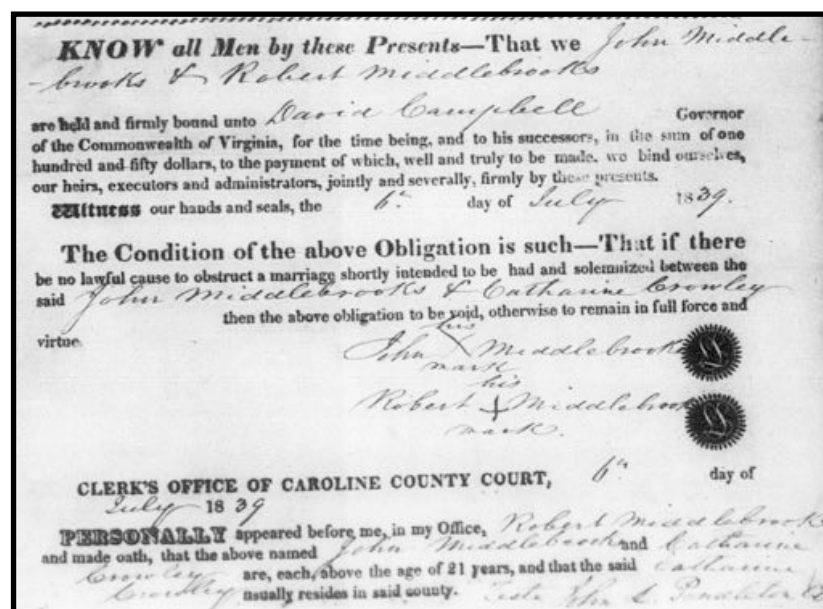 KNOW all Men by these Presents—That we John Middle-
-brooks & Robert Middlebrooks
are held and firmly bound unto David Campbell Governor
of the Commonwealth of Virginia, for the time being, and to his successors, in the sum of one
hundred and fifty dollars, to the payment of which, well and truly to be made, we bind ourselves,
our heirs, executors and administrators, jointly and severally, firmly by these presents.
Witness our hands and seals, the 6th day of July 1839.
The Condition of the above Obligation is such—That if there
be no lawful cause to obstruct a marriage shortly intended to be had and solemnized between the
said John Middlebrooks & Catharine Crowley
then the above obligation to be void, otherwise to remain in full force and
virtue.
his
John X Middlebrooks
mark
his
Robert X Middlebrooks
mark.
CLERK'S OFFICE OF CAROLINE COUNTY COURT, 6th day of
July 1839
PERSONALLY appeared before me, in my Office, Robert Middlebrooks
and made oath, that the above named John Middlebrooks and Catharine
Crowley are, each, above the age of 21 years, and that the said Catharine
Crowley usually resides in said county. Teste John L. Pendleton